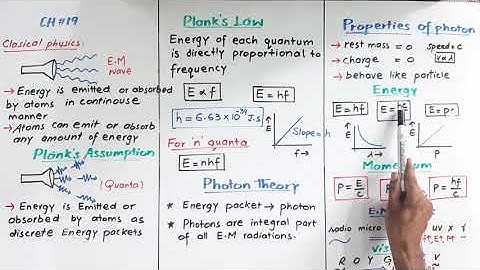 CH #19
Clasical physics:
E.M
wave
→ Energy is emitted or absorbed
by atoms in continouse
manner
→ Atoms can emit or absorb
any amount of energy
Plank's Assumption
(Quanta)
→ Energy is Emitted or
absorbed by atoms as
discrete Energy packets
Plank's Low
Energy of each quantum
is directly proportional to
frequency
E ∝ f
E = hf
h = 6.63×10⁻³⁴ J.s
For 'n' quanta
E = nhf
E
↑
Slope = h
f →
Photon Theory
* Energy packet → photon
* Photons are integral part
of all E.M radiations.
Properties of photon
→ rest mass = 0
speed = c
→ charge = 0
→ behave like particle
Energy
E = hf
E = hc
E = pc
↑
E
λ →
↑
E
P
Momentum
P = E/c
P =
P = hf/c
E.M
radio micro
UV X
R O Y G